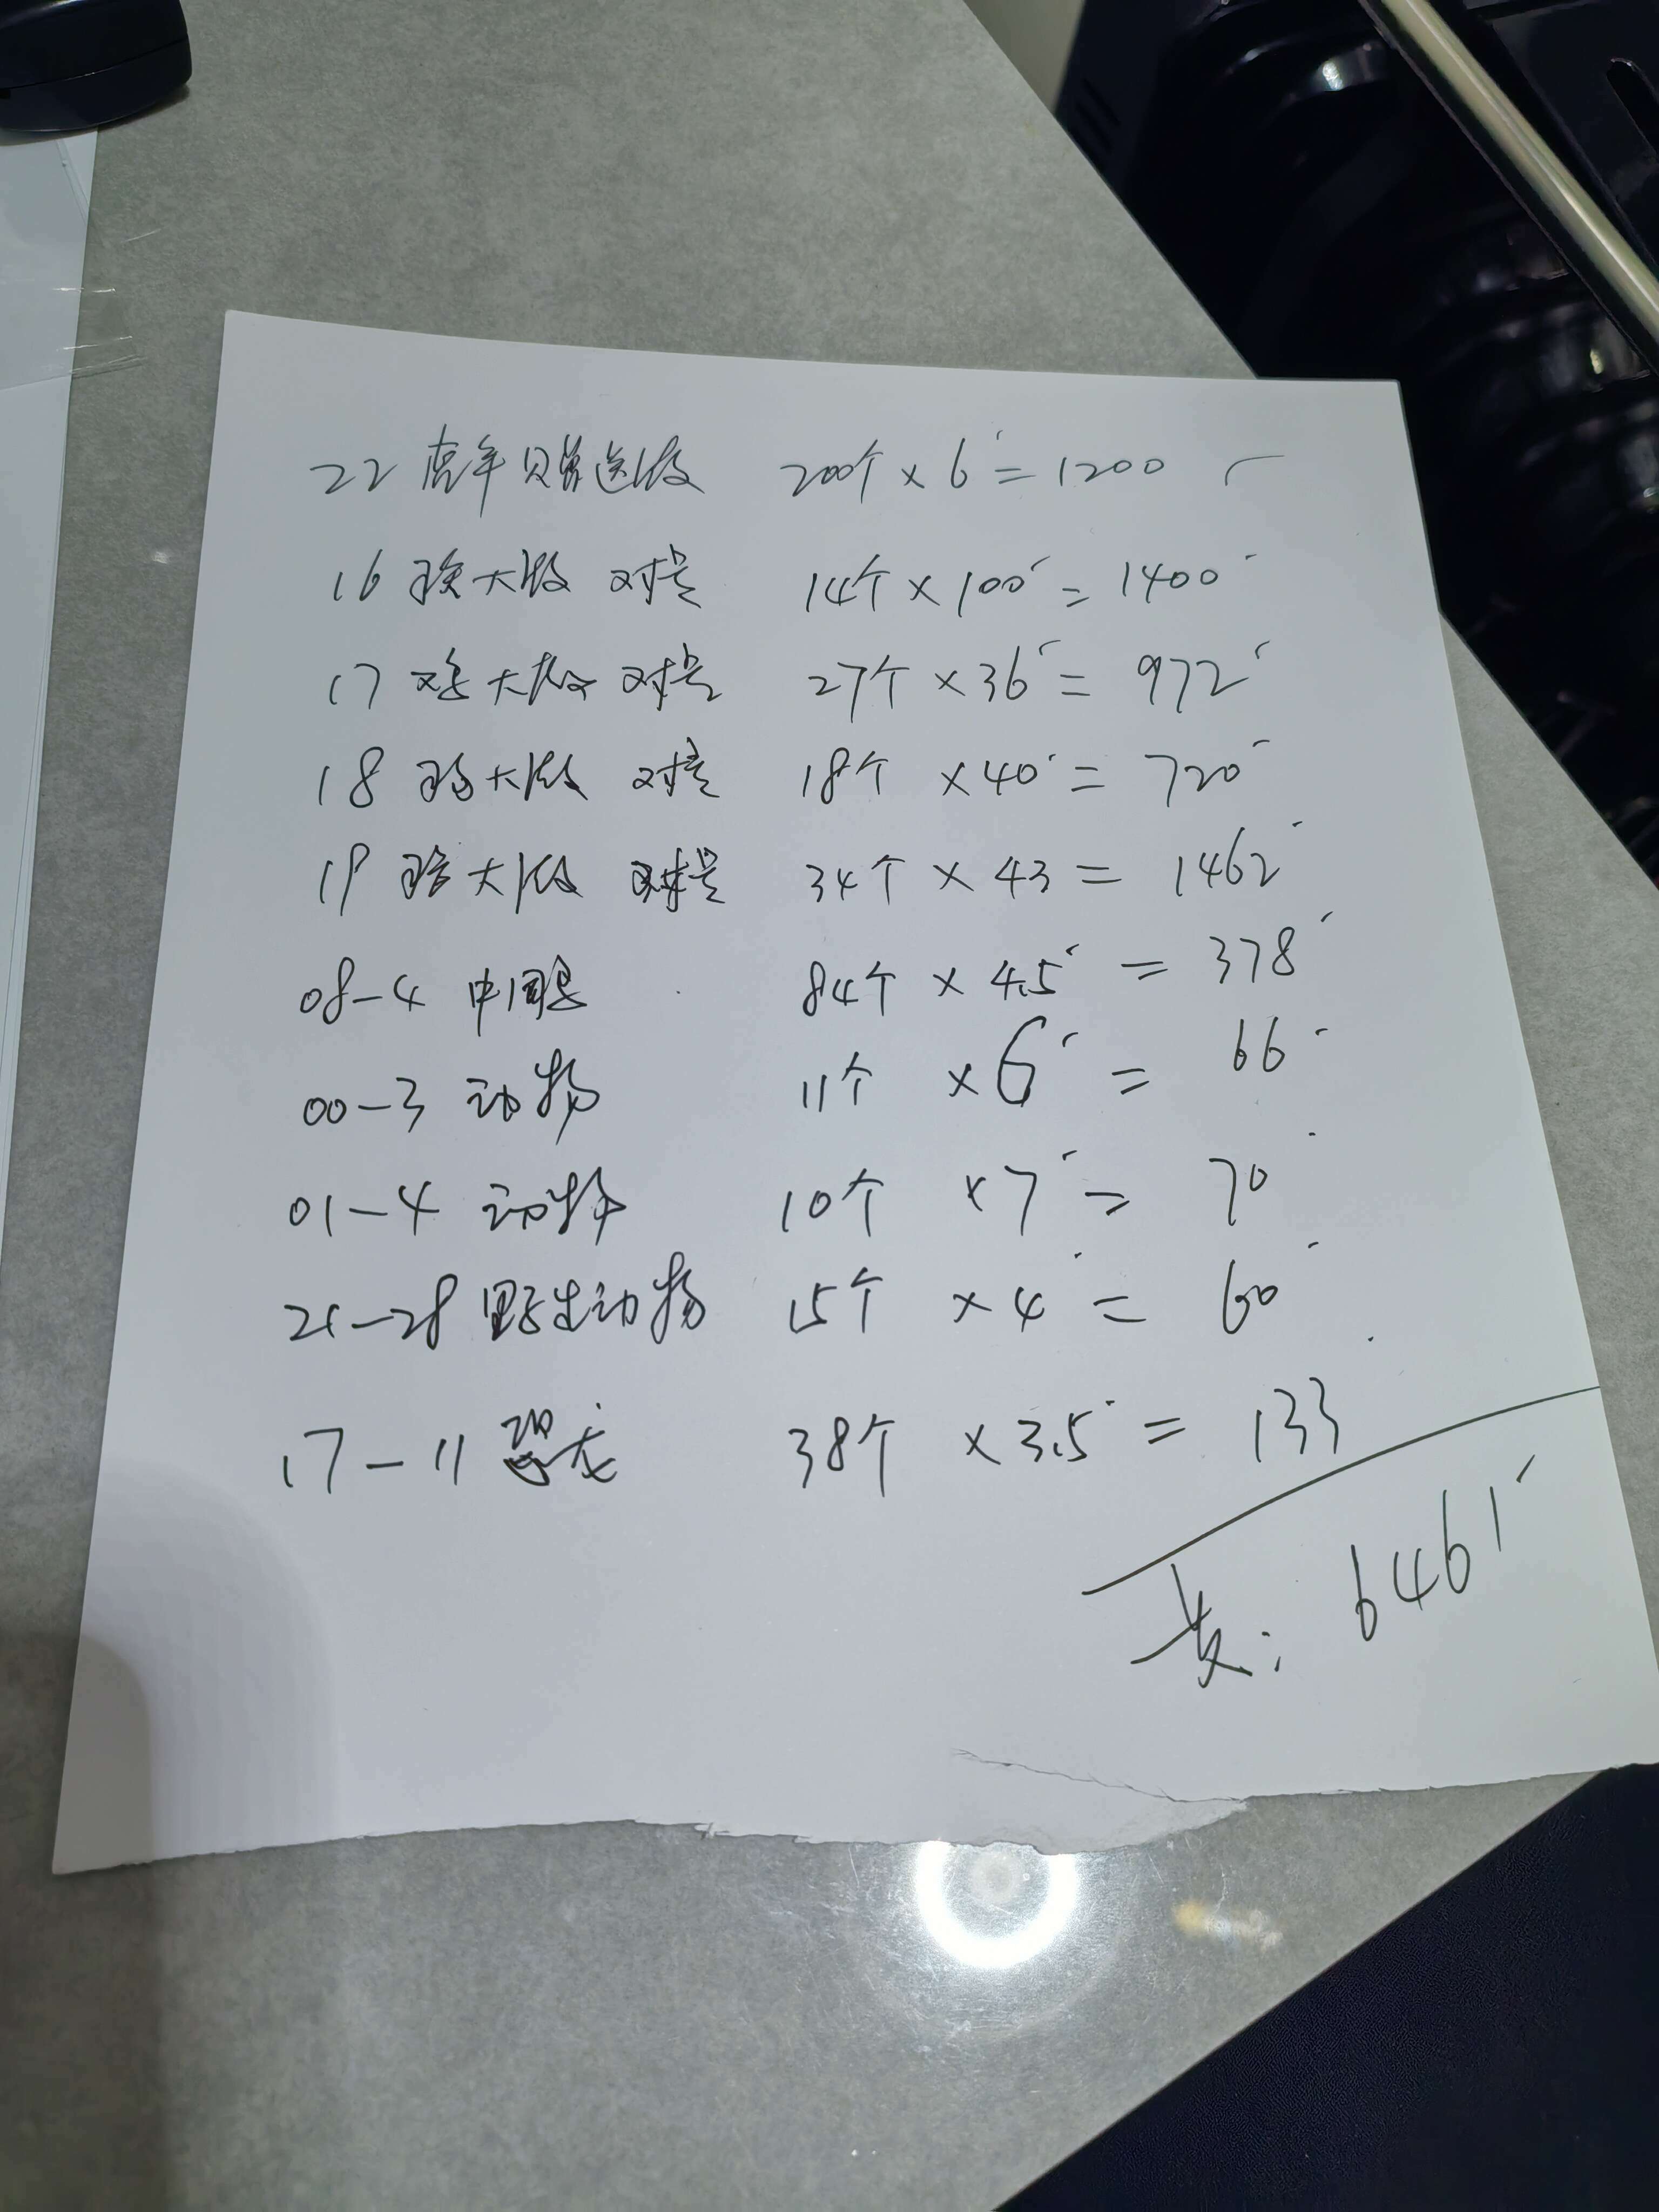 22 虎年赠送版 200个×6=1200
16 猴大版 对号 14个×100=1400
17 鸡大版 对号 27个×36=972
18 狗大版 对号 18个×40=720
19 猪大版 对号 34个×43=1462
08-4 中国鸟 84个×4.5=378
00-3 动物 11个×6=66
01-4 动物 10个×7=70
21-28 野生动物 15个×4=60
17-11 恐龙 38个×3.5=133
发:6461